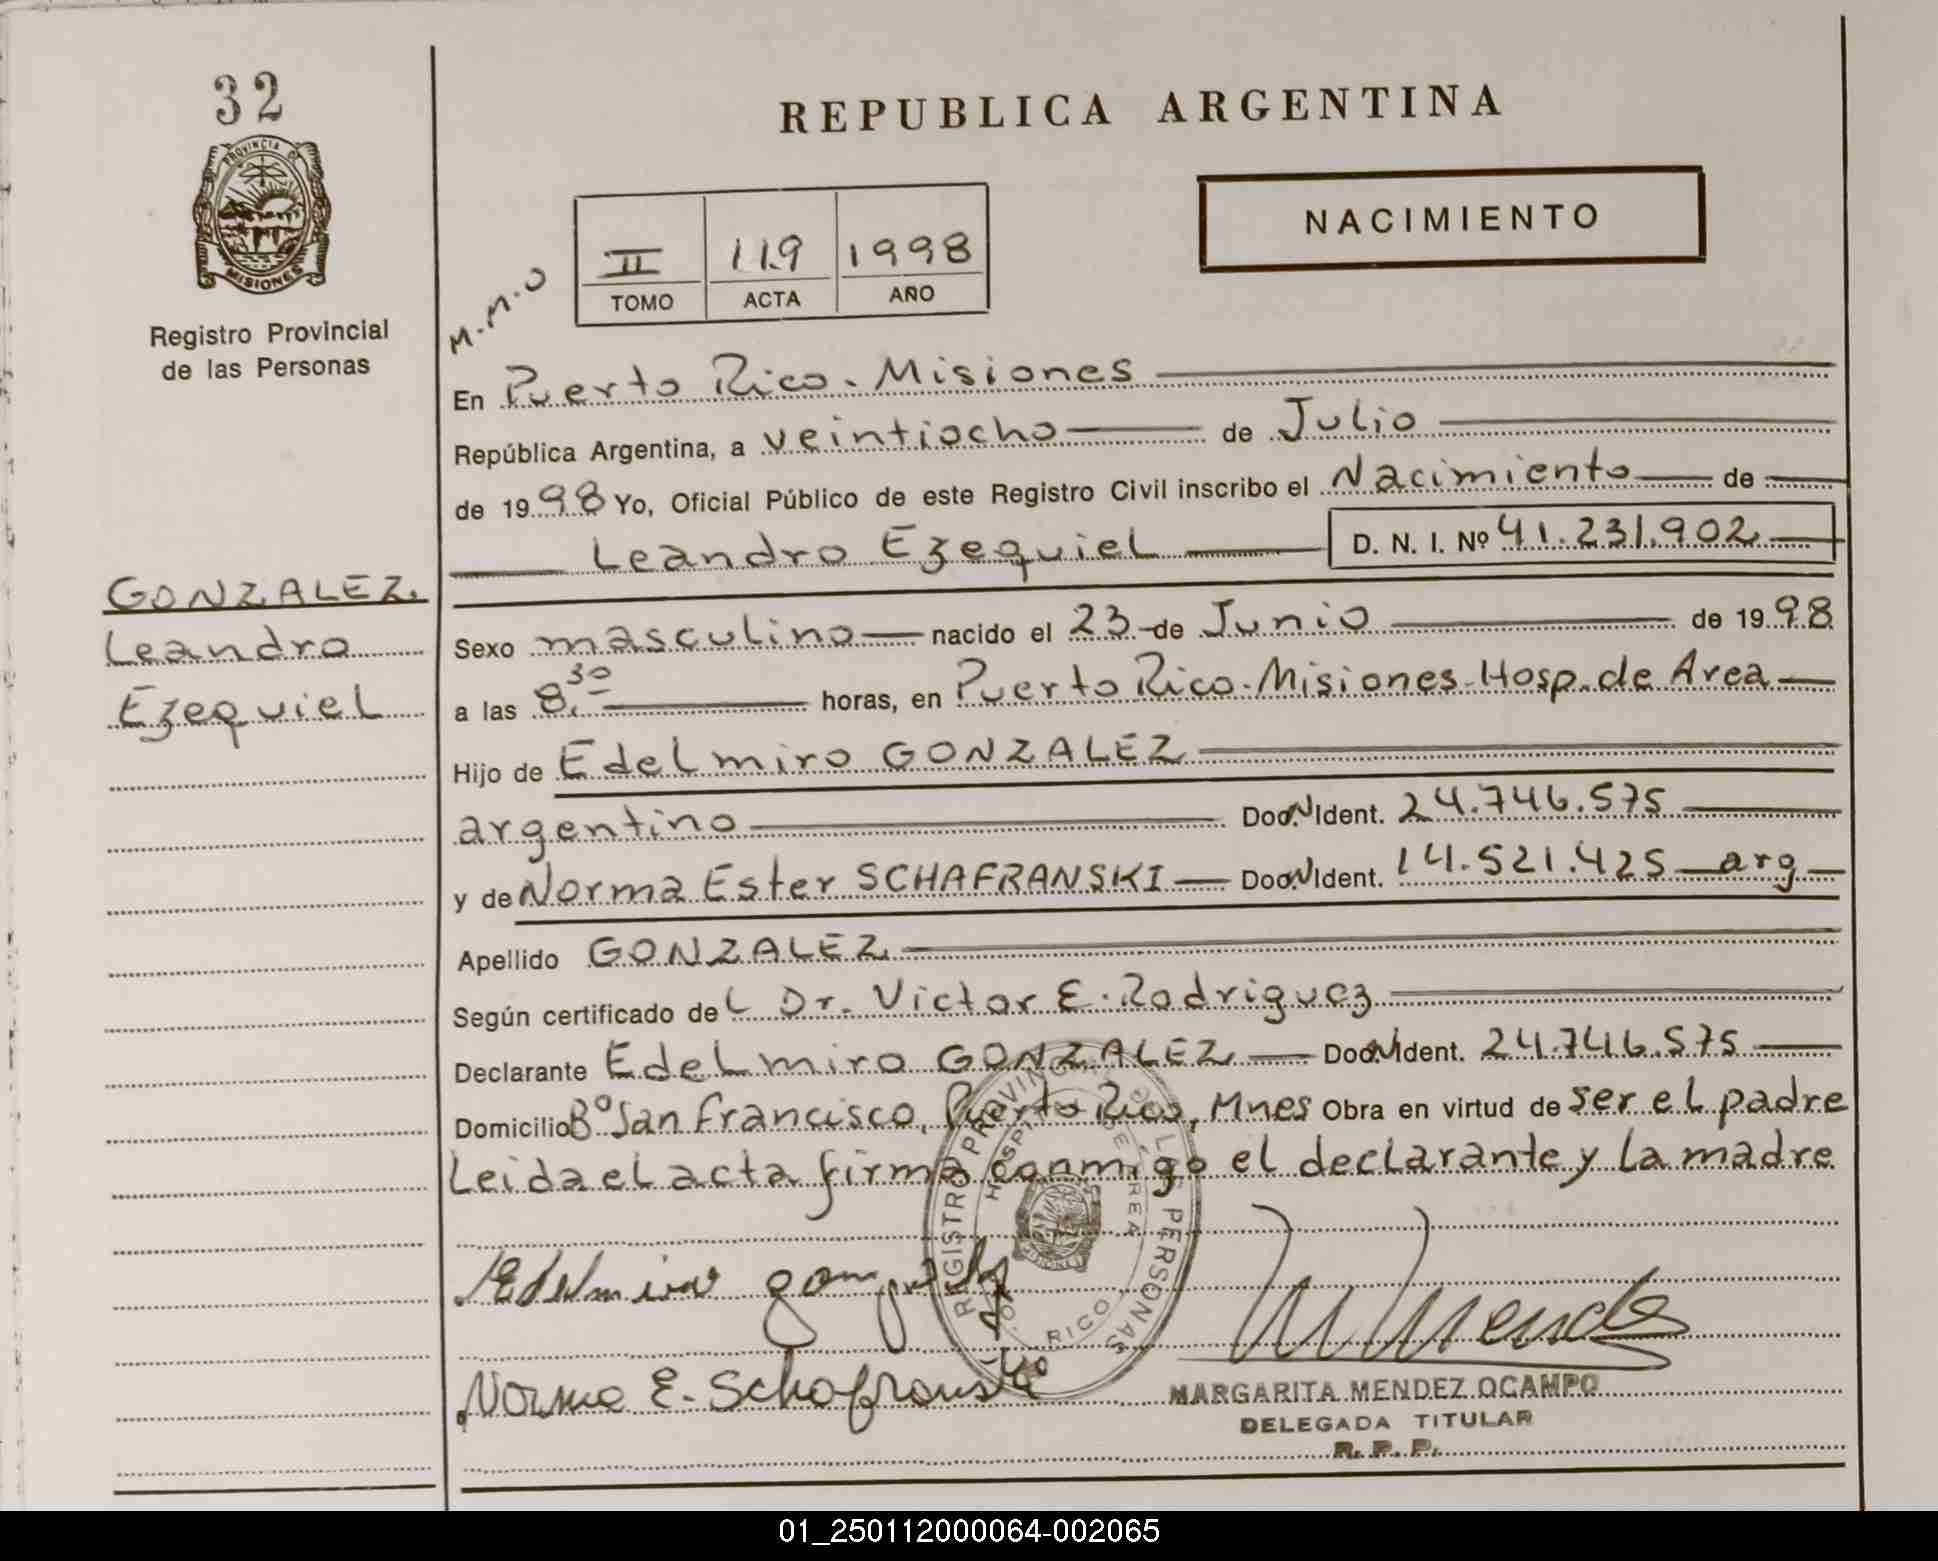 32
PROVINCIA DE
MISIONES
Registro Provincial
de las Personas
GONZALEZ
Leandro
Ezequiel
REPUBLICA ARGENTINA
NACIMIENTO
II 119 1998
TOMO ACTA AÑO
M.M.O
En Puerto Rico. Misiones
República Argentina, a veintiocho de Julio
de 1998 Yo, Oficial Público de este Registro Civil inscribo el Nacimiento de
Leandro Ezequiel D. N. I. Nº 41.231.902
Sexo masculino nacido el 23 de Junio de 1998
a las 8.30 horas, en Puerto Rico. Misiones-Hosp. de Area
Hijo de Edelmiro GONZALEZ
argentino Doc. Ident. 24.746.575
y de Norma Ester SCHAFRANSKI Doc. Ident. 14.521.425 arg
Apellido GONZALEZ
Según certificado del Dr. Victor E. Rodriguez
Declarante Edelmiro GONZALEZ Doc. Ident. 24.746.575
Domicilio Bº San Francisco, Puerto Rico, Mnes Obra en virtud de ser el padre
Leida el acta firma conmigo el declarante y la madre
REGISTRO PROVINCIAL DE LAS PERSONAS
HOSPITAL DE AREA
PTO. RICO
MISIONES
Edelmiro gonzalez
M Mendez
Norma E. Schafranski
MARGARITA MENDEZ OCAMPO
DELEGADA TITULAR
R. P. P.
01_250112000064-002065